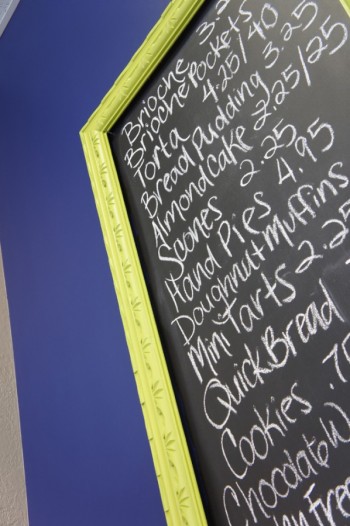 Brioche
Brioche Pockets
Torta 4.25/40
Bread pudding 3.25
Almond Cake 2.25/25
Scones 2.25
Hand Pies 4.95
Doughnut Muffins
Mini Tarts 2.25
Quick Bread
Cookies .75
Chocolate W
Free